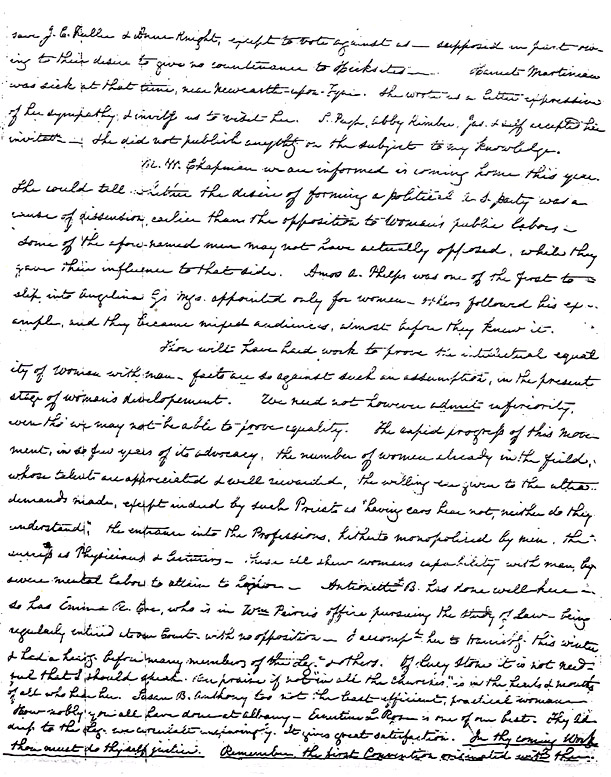 save J. C. Fuller & Anne Knight, except to vote against us — supposed in part ow-
ing to their desire to give no countenance to Hicksites — Harriet Martineau
was sick at that time, near Newcastle upon-Tyne. She wrote us a letter expressive
of her sympathy, & invitg us to visit her. S. Pugh, Abby Kimber, Jas. & self accepted her
invitatn — She did not publish anythg on the subject to my knowledge.
M. W. Chapman we are informed is coming home this year.
She could tell the desire of forming a political A. S. party was a
cause of dissension, earlier than the opposition to Woman's public labors —
Some of the afore-named men may not have actually opposed, while they
gave their influence to that side. Amos A. Phelps was one of the first to
slip into Angelina G's Mgs. appointed only for women — others followed his ex-
ample, and they became mixed audiences, almost before they knew it.
Thou wilt have hard work to prove the intellectual equal
ity of Woman with man — facts are so against such an assumption, in the present
stage of woman's developement. We need not however admit inferiority,
even tho' we may not be able to prove equality. The rapid progress of this Move
ment, in so few years of its advocacy, the number of women already in the field,
whose talents are appreciated & well rewarded, the willing ear given to the ultra
demands made, except indeed by such Priests as "having ears hear not, neither do they
understand;" the entrance into the Professions, hitherto monopolised by men, their
success as Physicians & Lecturers — these all shew woman's capability with man, by
severe mental labor to attain to — Antoinette B. has done well here —
so has Emma R. Coe, who is in Wm Peirce's office pursuing the study of Law — being
regularly entered at our Court with no opposition — I accompd. her to Harrisbg. this winter
& had a heang. before many members of the Leg. & others. Of Lucy Stone it is not need-
ful that I should speak. Her praise if not "in all the churches," is in the hearts & mouths
of all who hear her. Susan B. Anthony too not the least efficient, practical woman —
How nobly you all have done at Albany — Ernestine L. Rose is one of our best. Thy Ad-
dress to the Leg. we circulate unsparing'y. It gives great satisfaction. In thy coming Work
thou must do thyself justice. Remember the first Convention originated with thee